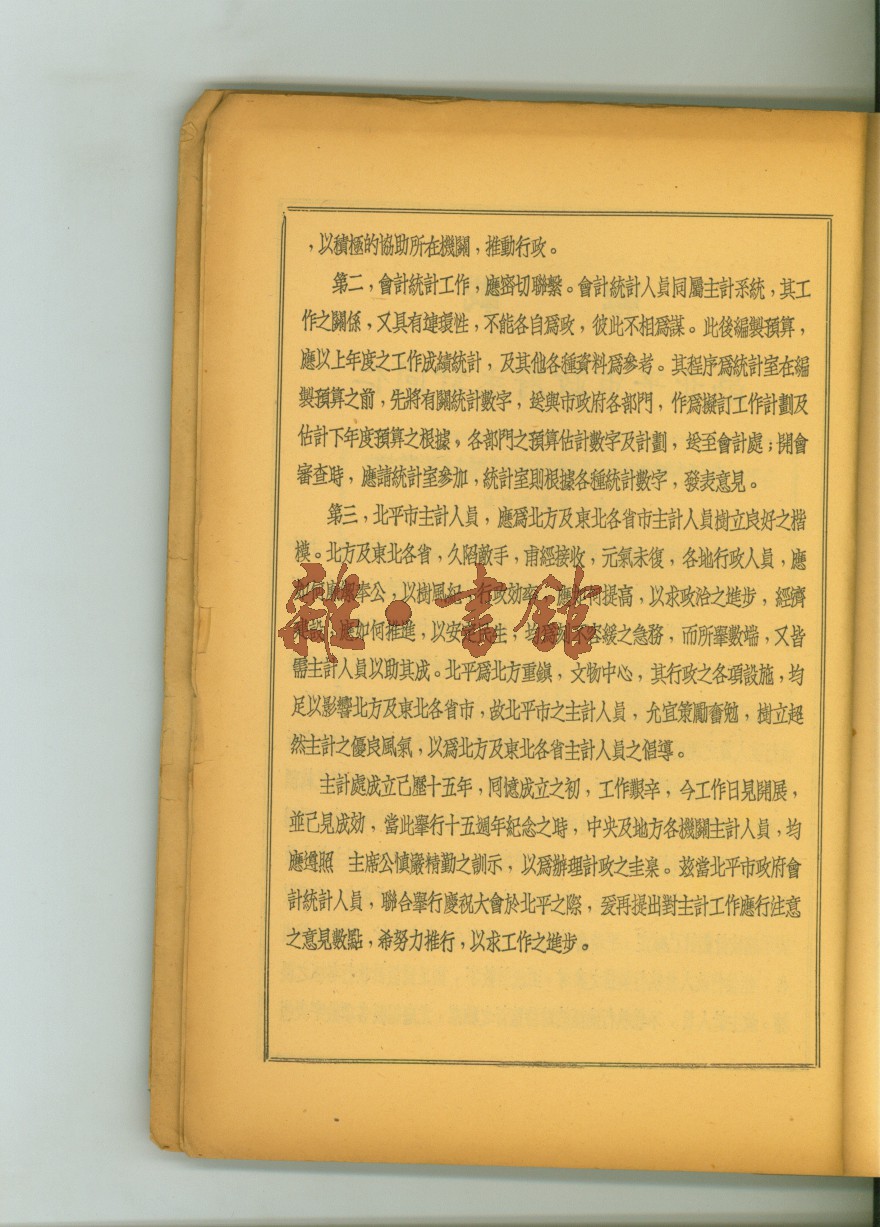 ，以積極的協助所在機關，推動行政。
第二，會計統計工作，應密切聯繫。會計統計人員同屬主計系統，其工
作之關係，又具有連環性，不能各自爲政，彼此不相爲謀。此後編製預算，
應以上年度之工作成績統計，及其他各種資料爲參考。其程序爲統計室在編
製預算之前，先將有關統計數字，送與市政府各部門，作爲擬訂工作計劃及
估計下年度預算之根據，各部門之預算估計數字及計劃，送至會計處；開會
審查時，應請統計室參加，統計室則根據各種統計數字，發表意見。
第三，北平市主計人員，應爲北方及東北各省市主計人員樹立良好之楷
模。北方及東北各省，久陷敵手，甫經接收，元氣未復，各地行政人員，應
如何廉潔奉公，以樹風紀，行政効率，應如何提高，以求政治之進步，經濟
建設，應如何推進，以安定民生，均爲刻不容緩之急務，而所舉數端，又皆
需主計人員以助其成。北平爲北方重鎮，文物中心，其行政之各項設施，均
足以影響北方及東北各省市，故北平市之主計人員，允宜策勵奮勉，樹立超
然主計之優良風氣，以爲北方及東北各省主計人員之倡導。
主計處成立已歷十五年，囘憶成立之初，工作艱辛，今工作日見開展，
並已見成効，當此舉行十五週年紀念之時，中央及地方各機關主計人員，均
應遵照　主席公慎嚴精勤之訓示，以爲辦理計政之圭臬。茲當北平市政府會
計統計人員，聯合舉行慶祝大會於北平之際，爰再提出對主計工作應行注意
之意見數點，希努力推行，以求工作之進步。
雜·書館